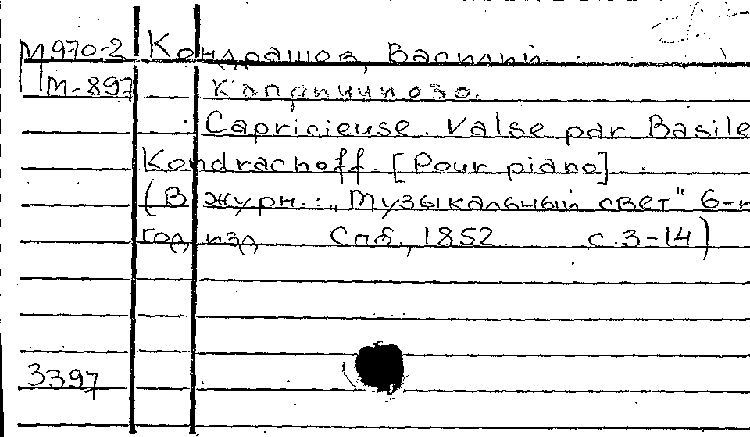 М970-2 Кондрашов, Василий
М-897 Каприччиозо.
Capricieuse Valse par Basile
Kondrachoff. [Pour piano]
(В журн.: „Музыкальный свет" 6-й
год изд Спб, 1852 с. 3-14)
3397